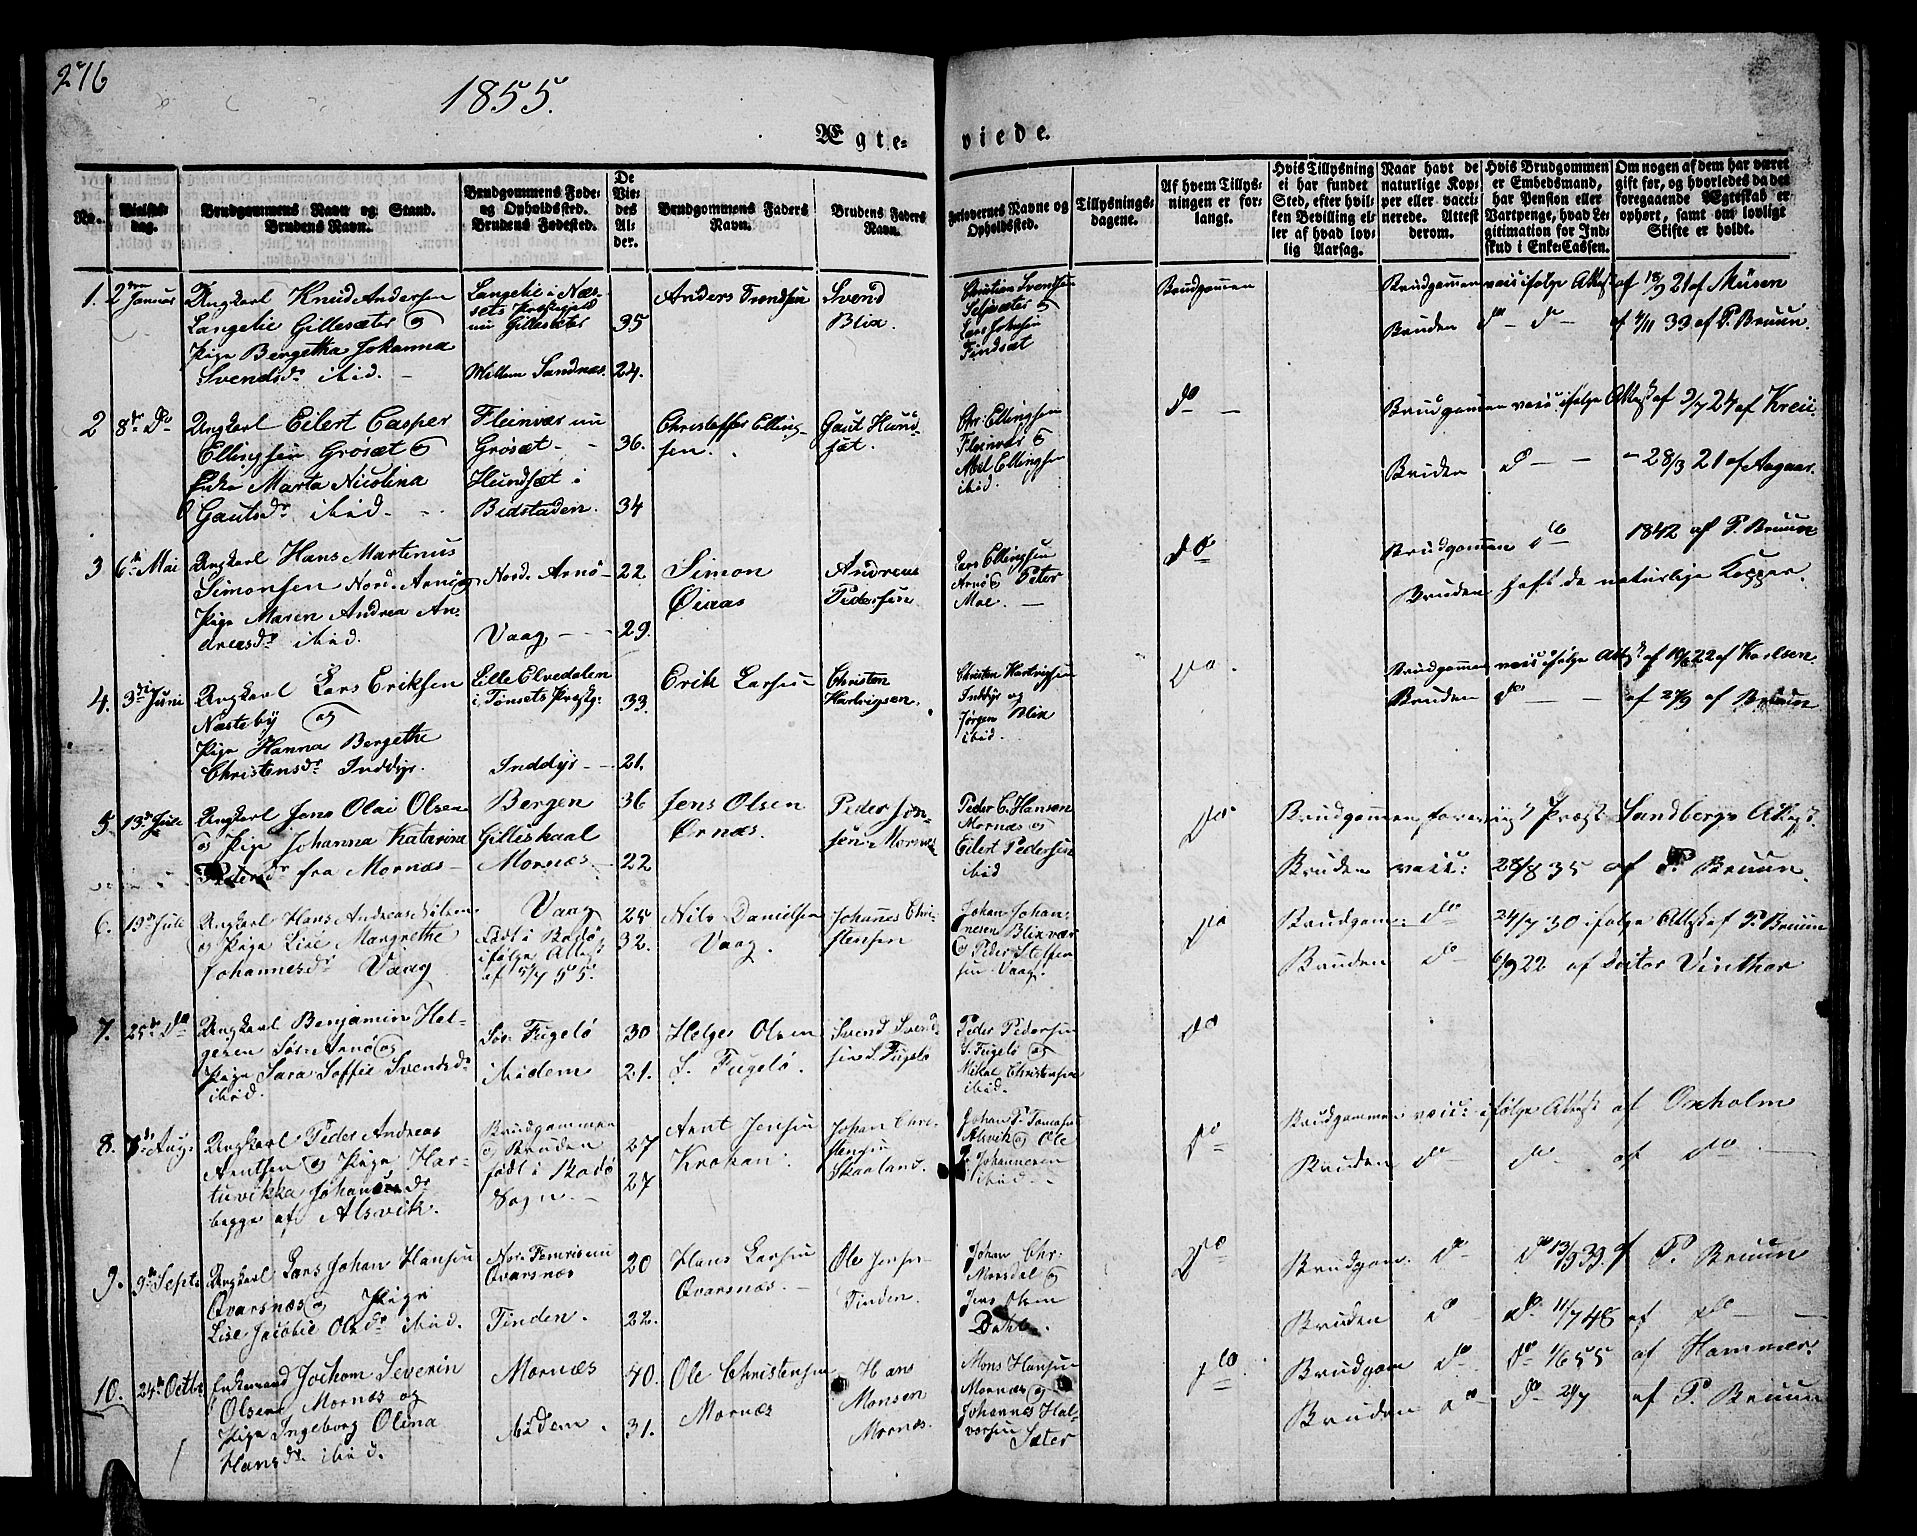 276
1855.
Ægte-
viede.
No.
Vielses-
dag.
Brudgommens Navn og Stand.
Brudens Navn.
Brudgommens Føde-
og Opholdssted.
Brudens Fødested.
De
Vie-
des
Al-
der.
Brudgommens Faders
Navn.
Brudens Faders
Navn.
Forlovernes Navne og
Opholdssted.
Tillysnings-
dagene.
Af hvem Tillys-
ningen er for-
langt.
Hvis Tillysning
ei har fundet
Sted, efter hvil-
ken Bevilling el-
ler af hvad lov-
lig Aarsag.
Naar havt de
naturlige Kop-
per eller vacci-
nerede. Attest
derom.
Hvis Brudgommen
er Embedsmand,
har Pension eller
Vartpenge, hvad Le-
gitimation for Ind-
skud i Enke-Cassen.
Om nogen af dem har været
gift før, og hvorledes da det
foregaaende Ægteskab er
ophørt, samt om lovligt
Skifte er holdt.
1. 2den Januar
Ungkarl Knud Andersen
Langelie Gillesæter og
Pige Bergetha Johanna
Svendsdr ibid. -
Langelie i Næs-
sets Præstegjeld
nu Gillesæter
Mellem Sandnæs.
35
24.
Anders Trondsen
Svend
Blix.
Christian Svendsen
Selsæter og
Lars Johnsen
Findsæt
Brudgommen
Brudgommen vacc: ifølge Attest af 18/9 21 af Müsen
Bruden do - do - af 4/11 33 af P. Bruun.
2 8de Do
Ungkarl Eilert Casper
Ellingsen Grøsæt og
Enke Marta Nicolina
Gautsdr ibid.
Fleinvær nu
Grøsæt -
Hundsæt i
Bidstaden.
36.
34
Christoffer Elling-
sen.
Gaut Hund-
sæt.
Chr: Ellingsen
Fleinvær og
Mel Ellingsen
ibid.
do -
Brudgommen vacc: ifølge Attest af 9/7 24 af Kreü-
Bruden do - - - 28/3 21 af Aagaar.
3 6te Mai
Ungkarl Hans Martinus
Simonsen Nord-Arnø og
Pige Maren Andrea An-
dreasdr ibid.
Nord-Arnø -
Vaag - - -
22
29.
Simon
Øiaas
Andreas
Pedersen
Lars Ellingsen
Arnø og Peter
Moe. -
do
Brudgommen do 1842 af P. Bruun
Bruden haft de naturlige Kopper.
4. 3die Juni
Ungkarl Lars Eriksen
Næsteby og
Pige Hanna Bergethe
Christensdr Inddyr.
Lille Elvedalen
i Tønsets Præstg:
Inddyr -
33.
21.
Erik Larsen
Christen
Hartvigsen.
Christen Hartvigsen
Inddyr og
Jørgen Blix
ibid.
do.
Brudgommen vacc: ifølge Attest af 19/6 22 af Karlsen.
Bruden do - af 27/9 af Bruun
5. 13de Juli
Ungkarl Jens Olai Olsen
og Pige Johanna Katarina
Pedersdr fra Mornæs -
Bergen
Gilleskaal
Mornæs.
36
22
Jens Olsen
Ørnæs.
Peder Jon-
sen Mornæs
Peder C. Hansen
Mornæs og
Eilert Pedersen
ibid
Do
Brudgommen Præst Sandbergs Attest.
Bruden vacc: 28/8 35 af P. Bruun.
6. 13de Juli
Ungkarl Hans Andreas Nilsen
og Pige Lise Margrethe
Johannesdr Vaag
Vaag
Født i Bodø
ifølge Attest
af 5/7 55.
25
32.
Nils Danielsen
Vaag.
Johannes Chri-
stensen
Johan Johan-
nesen Blixvær
og Peder Steffen-
sen Vaag.
do
Brudgom: do 24/7 30 ifølge Attest af P. Bruun
Bruden do 6/9 22 af Doctor Vinther
7. 25de do
Ungkarl Benjamin Hel-
gesen Sør-Arnø og
Pige Sara Soffie Svendsdr
ibid.
Sør Fugelø
ibidem
30
21.
Helger Olsen
S. Fugelø.
Svend Svend-
sen S. Fugelø
Peder Pedersen
S. Fugelø og
Mikal Christensen
ibid.
do
8. Aug:
Ungkarl Peder Andreas
Arntsen og Pige Har-
tuvikka Johansdr
begge af Alsvik.
Brudgommen
og Bruden
født i Bodø
Sogn. -
27
27
Arnt Jensen
Krokan.
Johan Chri-
stensen
Skaaland.
Johan P. Tomasen
Alsvik og Ole
P. Johannesen
ibid. -
do
Brudgommen vacc: ifølge Attest af Oxholm
Bruden do do af do
9. 9de Septr
Ungkarl Lars Johan Hansen
Qvarsnæs og Pige
Lise Jacobie Olsdr ibid.
Nor-Femris nu
Qvarsnæs
Tinden.
20
22.
Hans Larsen
Qvarsnæs.
Ole Jensen
Tinden.
Johan Chr:
Morsdal og
Jens Olsen
Dahl.
do
Brudgom: do do 13/9 39. af P. Bruun
Bruden do do 11/7 48 af do -
10. 24de Octbr
Enkemand Jochom Severin
Olsen Mornæs og
Pige Ingeborg Olina
Hansdr ibid.
Mornæs
ibidem.
40.
31.
Ole Christensen
Mornæs
Hans
Monsen
Mornæs.
Mons Hansen
Mornæs og
Johannes Hal-
vorsen
Sæter
do
Brudgom do do 1/6 55 af Hammer.
Bruden do do 2/7 af P. Bruun